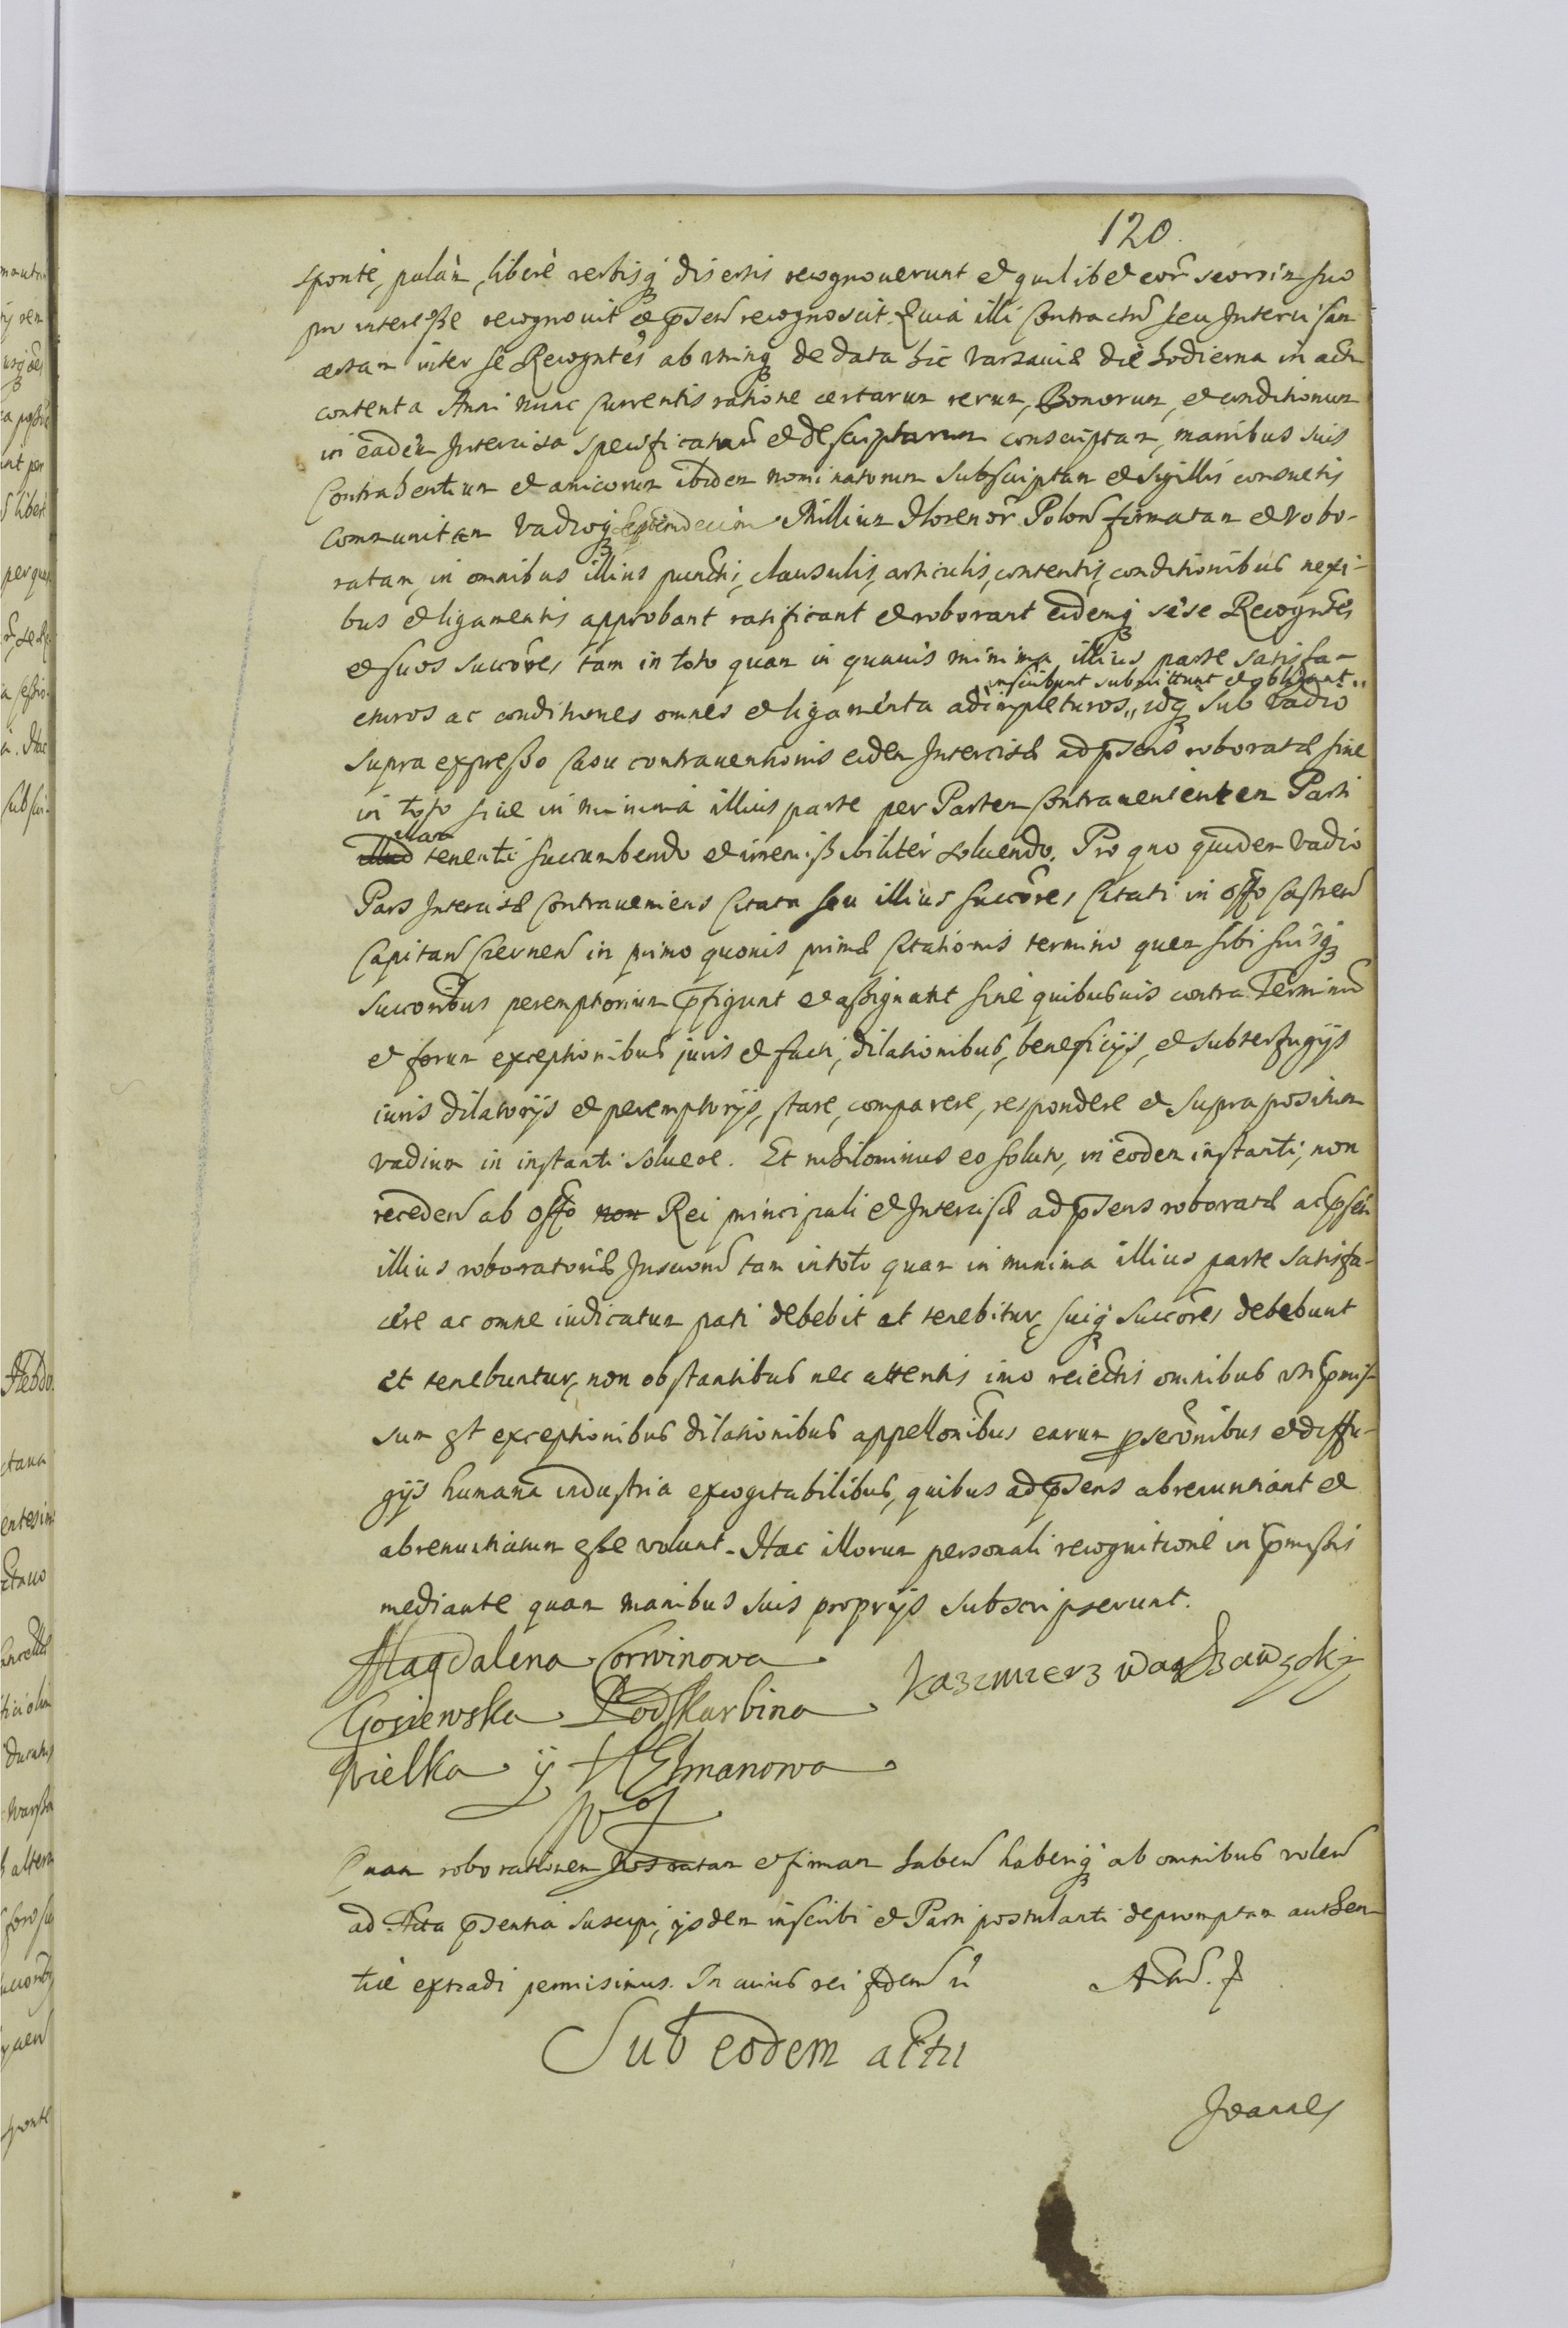 120.
sponte, palàm, liberè verbisq₃ disertis recognoverunt et quilibet eor̃ seorsim suo
pro interesse recognovit et p̃sen recognoscit. Quia illi Contractũ seu Intercisam
certam inter se Recogn̄tes ab utrinq₃ de data hic Varsaviæ die hodierna in actu
contenta Anni nunc Currentis ratione certarum rerum, Bonorum, et conditionum
in eadem Intercisa specificatarũ et descriptarum conscriptam, manibus suis
Contrahentium et amicorum ibidem nominatorum subscriptam et sigillis consuetis
communitam Vadioq₃ Septemdecim Millium Florenor̃ Polon firmatam et robo-
ratam, in omnibus illius punctis, clausulis, articulis, contentis, conditionibus nexi-
bus et ligamentis approbant ratificant et roborant eidemq₃ sese Recogn̄tes
et suos succ̃ores tam in toto quam in quavis minima illius parte satisfa-
inscribunt submittunt et obligant „
cturos ac conditiones omnes et ligamenta adimpleturos „ idq₃ sub vadio
supra expresso Casu contraventionis eidem Intercisæ ad p̃sens roboratæ sive
in toto sive in minima illius parte per Partem Contravenientem Parti
illam
illud tenenti succumbendo et irremissibiliter solvendo. Pro quo quidem Vadio
Pars Intercisæ Contraveniens Citata seu illius Succ̃ores Citati in off̃o Castren
Capitan Czernen in primo quovis primæ Citationis termino quem sibi suisq₃
succoribus peremptorium p̃figunt et assignant sine quibusvis contra Terminũ
et forum exceptionibus juris et facti, dilationibus, beneficijs, et subterfugijs
iuris dilatorijs et peremptorijs, stare, comparere, respondere et supra positum
vadium in instanti solvere. Et nihilominus eo soluto, in eodem instanti, non
receden ab off̃o non Rei principali et Intercisæ ad p̃sens roboratæ ac p̃sen
illius roboratoriæ Inscr̃oni tam in toto quam in minima illius parte satisfa-
cere ac omne iudicatum pati debebit et tenebitur, suiq₃ succ̃ores debebunt
et tenebuntur, non obstantibus nec attentis imo reiectis omnibus uti p̃mis-
sum est exceptionibus dilationibus appellonibus earum p̱secõnibus et diffu-
gijs humana industria excogitabilibus, quibus ad p̃sens abrenuntiant et
abrenuntiatum esse volunt. Hac illorum personali recognitione in p̃missis
mediante quam manibus suis proprijs subscripserunt.
Magdalena Corwinowa
Kazimierz Warszawsky
Gosiewska Podskarbina
Wielka y HEtmanowa
Quam roborationem ratam et firmam haben haberiq₃ ab omnibus volen
ad Acta p̃sentia suscipi, ijsdem inscribi et Parti postulanti depromptam authen-
ticè extradi permisimus. In cuius rei fidem ũ
Sub eodem actu
Joannes